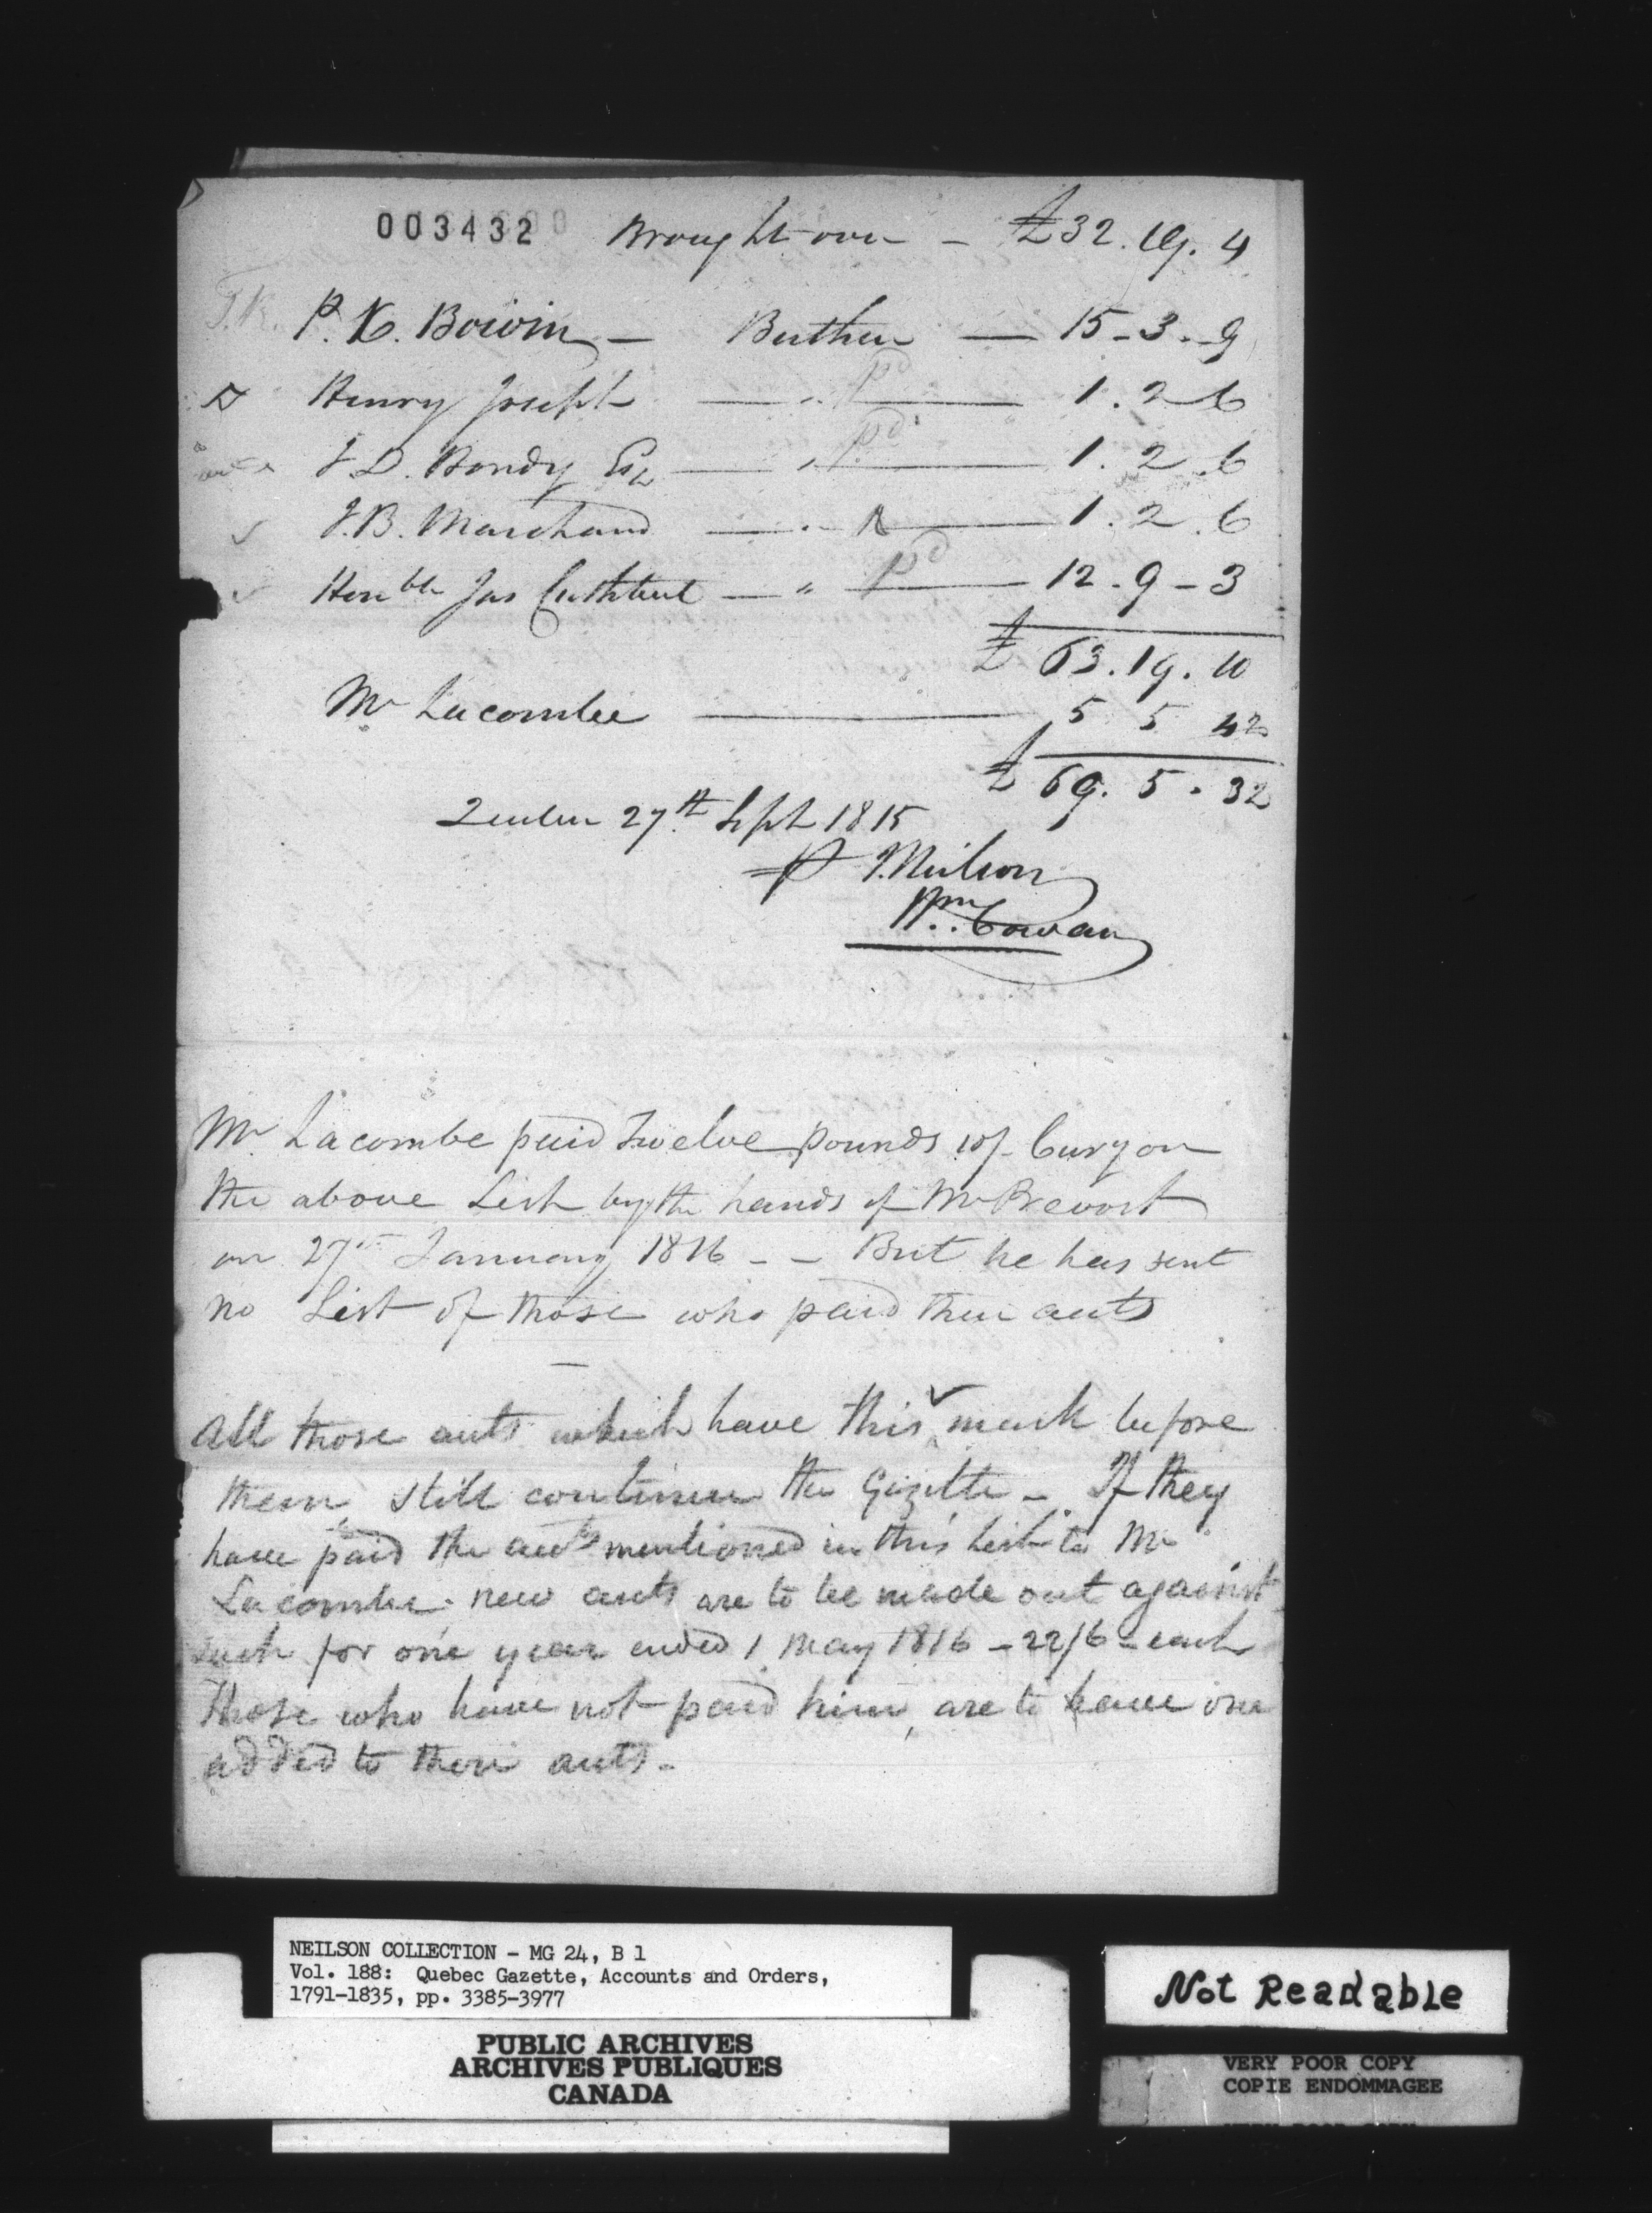 003432 Brought over - £32.19.4
P. K. Boivin - Berthier - 15-3-9
Henry Joseph - " Pd - 1.2-6
J D. Bondy Esq - " Pd - 1.2.6
J.B. Marchand - " - 1.2.6
Honble Jas Cuthbert - " Pd - 12-9-3
£ 63.19.10
Mr Lacombe - 5 5 4½
£ 69.5.3½
Quebec 27th Sept 1815
P J. Neilson
Wm. Cowan
Mr Lacombe paid Twelve pounds 10/- Curcy on
the above List by the hands of Mr Prevost
on 27th January 1816 - - But he has sent
no List of those who paid their accts
All those accts which have this ✓ mark before
them, still continue the Gazette - If they
have paid the accts mentioned in this List to Mr
Lacombe new accts are to be made out against
such for one year ended 1 May 1816 - 22/6 - each
Those who have not paid him, are to have one
added to their accts -
NEILSON COLLECTION - MG 24, B 1
Vol. 188: Quebec Gazette, Accounts and Orders,
1791-1835, pp. 3385-3977
PUBLIC ARCHIVES
ARCHIVES PUBLIQUES
CANADA
Not Readable
VERY POOR COPY
COPIE ENDOMMAGEE